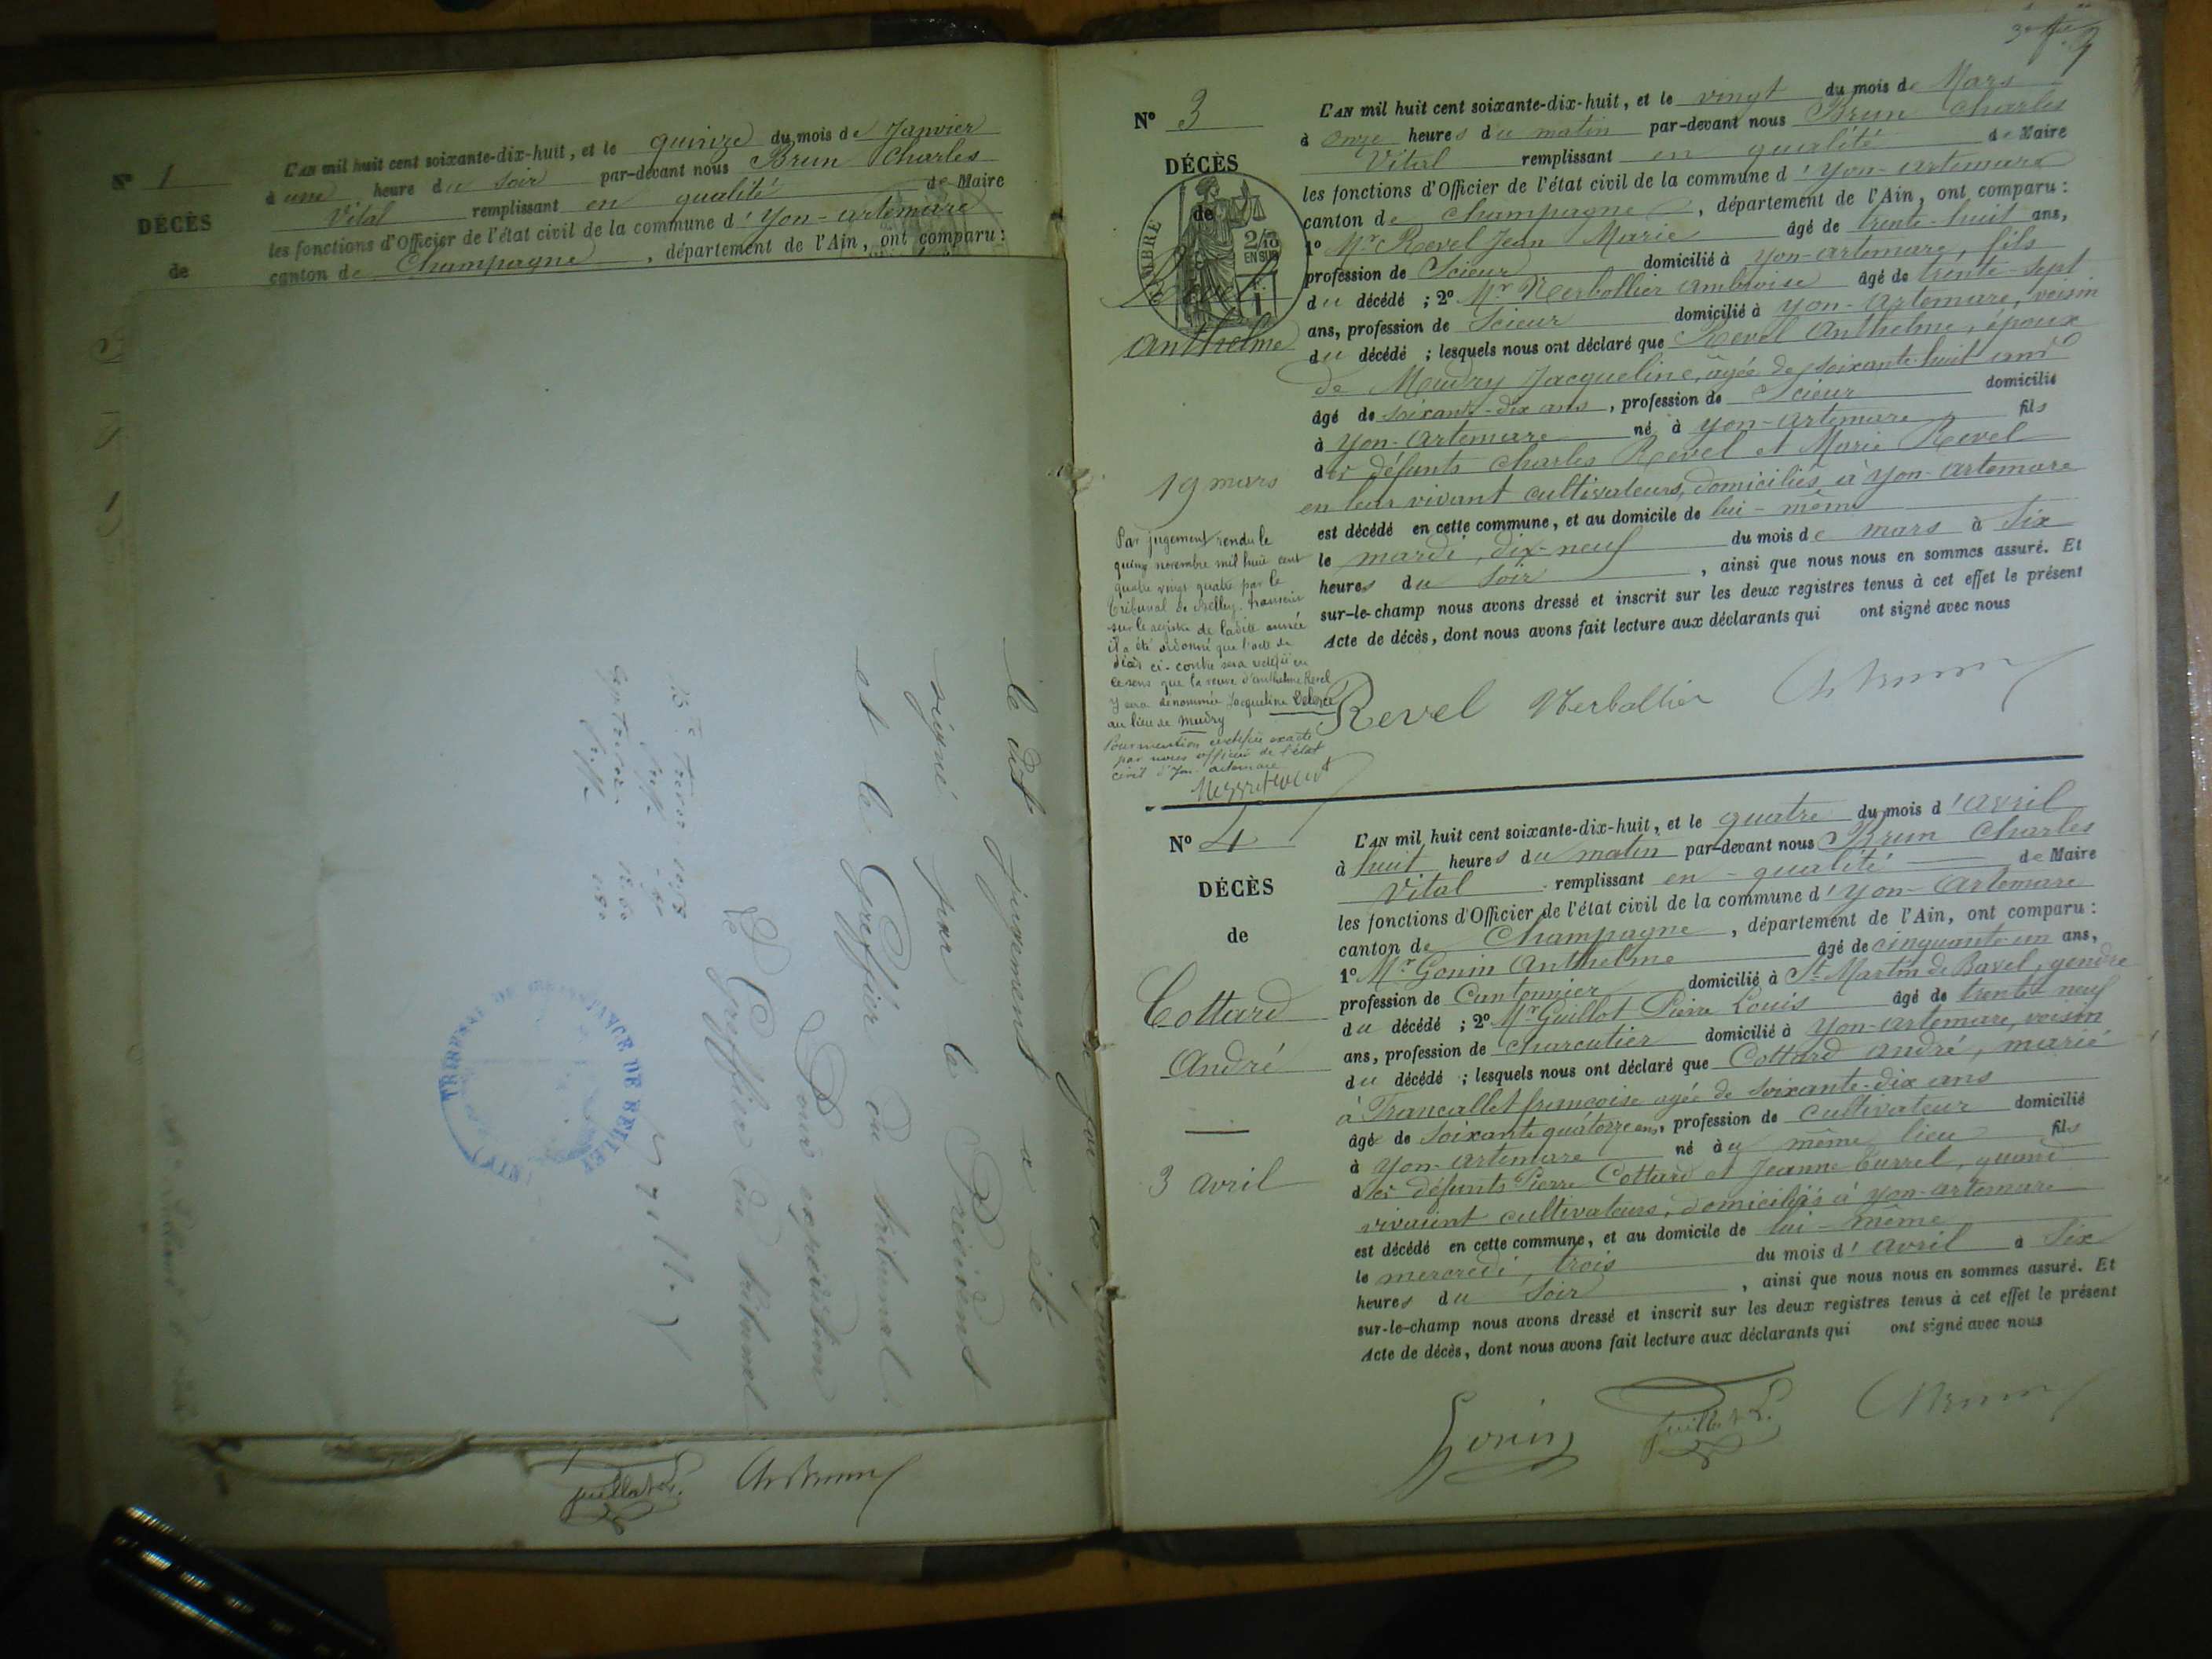 N° 1
DÉCÈS
de
L'AN mil huit cent soixante-dix-huit, et le quinze du mois de Janvier
à une heure du soir par-devant nous Brun Charles
Vital remplissant en qualité de Maire
les fonctions d'Officier de l'état civil de la commune d'Yon-artemare
canton de Champagne, département de l'Ain, ont comparu :
le dit jugement a été
signé par le Président
et le Greffier du tribunal.
Pour expédition
Le Greffier du tribunal
TRIBUNAL DE 1ère INSTANCE DE BELLEY
(AIN)
Guillot L. Ch Brun
N° 3
DÉCÈS
de
TIMBRE
2/10
EN SUS
Revel
Anthelme
19 mars
L'AN mil huit cent soixante-dix-huit, et le vingt du mois de Mars
à onze heures du matin par-devant nous Brun Charles
Vital remplissant en qualité de Maire
les fonctions d'Officier de l'état civil de la commune d'Yon-artemare
canton de Champagne, département de l'Ain, ont comparu :
1° Mr Revel Jean Marie âgé de trente-huit ans,
profession de Scieur domicilié à Yon-artemare, fils
du décédé ; 2° Mr Nerbollier Ambroise âgé de trente-sept
ans, profession de Scieur domicilié à Yon-Artemare, voisin
du décédé ; lesquels nous ont déclaré que Revel Anthelme, époux
de Mudry Jacqueline, âgée de soixante-huit ans
âgé de soixante-dix ans, profession de Scieur domicilié
à Yon-Artemare né à Yon-Artemare fils
des défunts Charles Revel et Marie Revel
en leur vivant cultivateurs, domiciliés à Yon-artemare
est décédé en cette commune, et au domicile de lui-même
le mardi, dix-neuf du mois de mars à six
heures du soir, ainsi que nous nous en sommes assuré. Et
sur-le-champ nous avons dressé et inscrit sur les deux registres tenus à cet effet le présent
Acte de décès, dont nous avons fait lecture aux déclarants qui ont signé avec nous
Par jugement rendu le
quinze novembre mil huit cent
quatre vingt quatre par le
tribunal de Belley, transcrit
sur le registre de ladite année
il a été ordonné que l'acte de
décès ci-contre sera rectifié en
ce sens que la veuve d'anthelme Revel
y sera dénommée Jacqueline
au lieu de Mudry
Pour mention certifiée exacte
par nous officier de l'état
civil d'Yon-artemare
Revel Nerbollier Ch Brun
N° 4
DÉCÈS
de
Cottard
André
3 avril
L'AN mil huit cent soixante-dix-huit, et le quatre du mois d'avril
à huit heures du matin par-devant nous Brun Charles
Vital remplissant en qualité de Maire
les fonctions d'Officier de l'état civil de la commune d'Yon-Artemare
canton de Champagne, département de l'Ain, ont comparu :
1° Mr Gonin Anthelme âgé de cinquante-un ans,
profession de Cantonnier domicilié à St Martin de Bavel, gendre
du décédé ; 2° Mr Guillot Pierre Louis âgé de trente neuf
ans, profession de charcutier domicilié à Yon-artemare, voisin
du décédé ; lesquels nous ont déclaré que Cottard andré, marié
à Trancallet françoise agée de soixante-dix ans
âgé de soixante quatorze ans, profession de cultivateur domicilié
à Yon-Artemare né au même lieu fils
des défunts Pierre Cottard et Jeanne Currel, quand
vivaient cultivateurs, domiciliés à Yon-artemare
est décédé en cette commune, et au domicile de lui-même
le mercredi, trois du mois d'avril à six
heures du soir, ainsi que nous nous en sommes assuré. Et
sur-le-champ nous avons dressé et inscrit sur les deux registres tenus à cet effet le présent
Acte de décès, dont nous avons fait lecture aux déclarants qui ont signé avec nous
Gonin Guillot L. Ch Brun